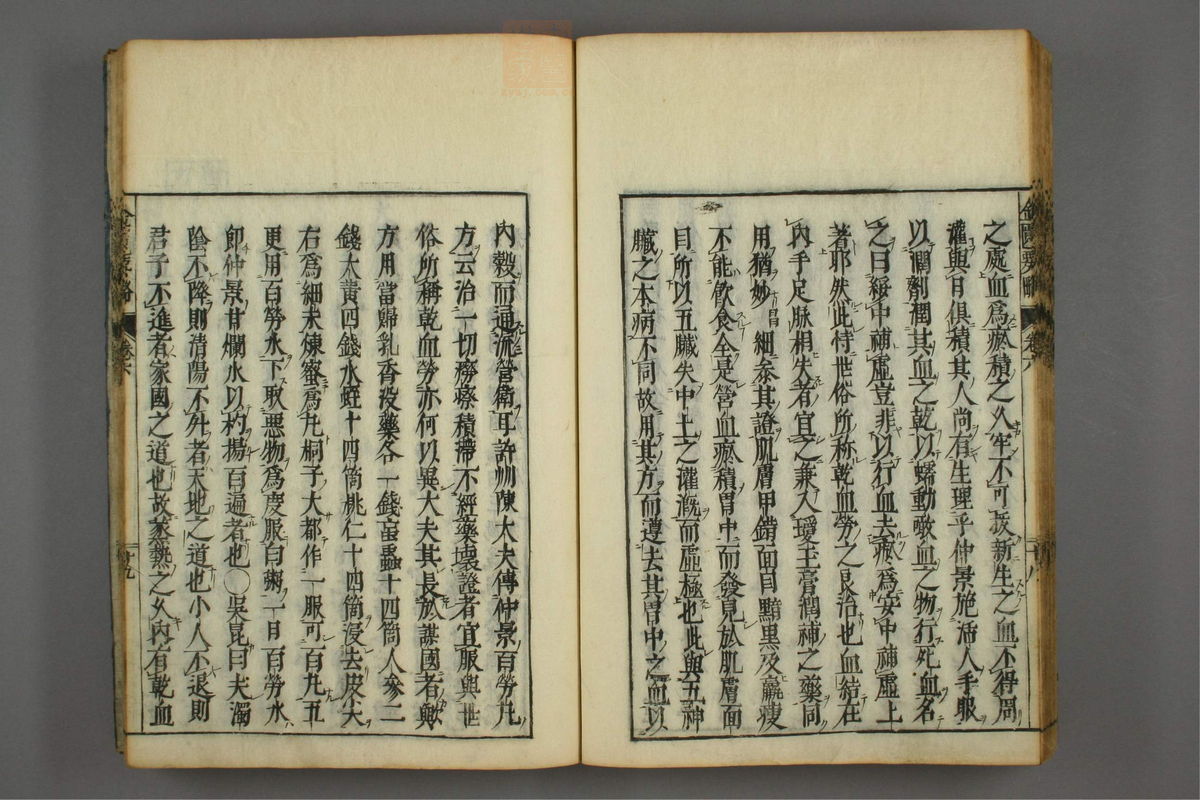 之處血爲瘀積之久牢不可拔新生之血不得周
灌與日俱積其人尚有生理乎仲景施活人手眼
以潤劑潤其血之乾以蠕動噉血之物行死血名
之曰緩中補虛豈非以行血去瘀爲安中補虛上
著耶然此特世俗所称乾血勞之良治也血結在
內手足脉相失者宜之兼入瓊玉膏潤補之藥同
用猶妙昌細叅其證肌膚甲錯面目黯黒及羸瘦
不能飲食全是營血瘀積胃中而發見於肌膚面
目所以五臟失中土之灌漑而虛極也此與五神
臟之本病不同故用其方而遵去其胃中之血以
內穀而通流營衛耳許州陳大夫傳仲景百勞丸
方云治一切癆瘵積滯不經藥壞證者宜服與世
俗所稱乾血勞亦何以異大夫其長於謀國者歟
方用當歸乳香沒藥各一錢䖟蟲十四箇人參二
錢大黃四錢水蛭十四箇桃仁十四箇浸去皮尖
右爲細末煉蜜爲丸桐子大都作一服可百丸五
更用百勞水下取惡物爲度服白粥一日百勞水
卽仲景甘爛水以杓揚百遍者也〇吳昆曰夫濁
陰不降則清陽不升者天地之道也小人不退則
君子不進者家國之道也故蒸熱之久內有乾血
金匱要略
卷六
十八
卷六
十九